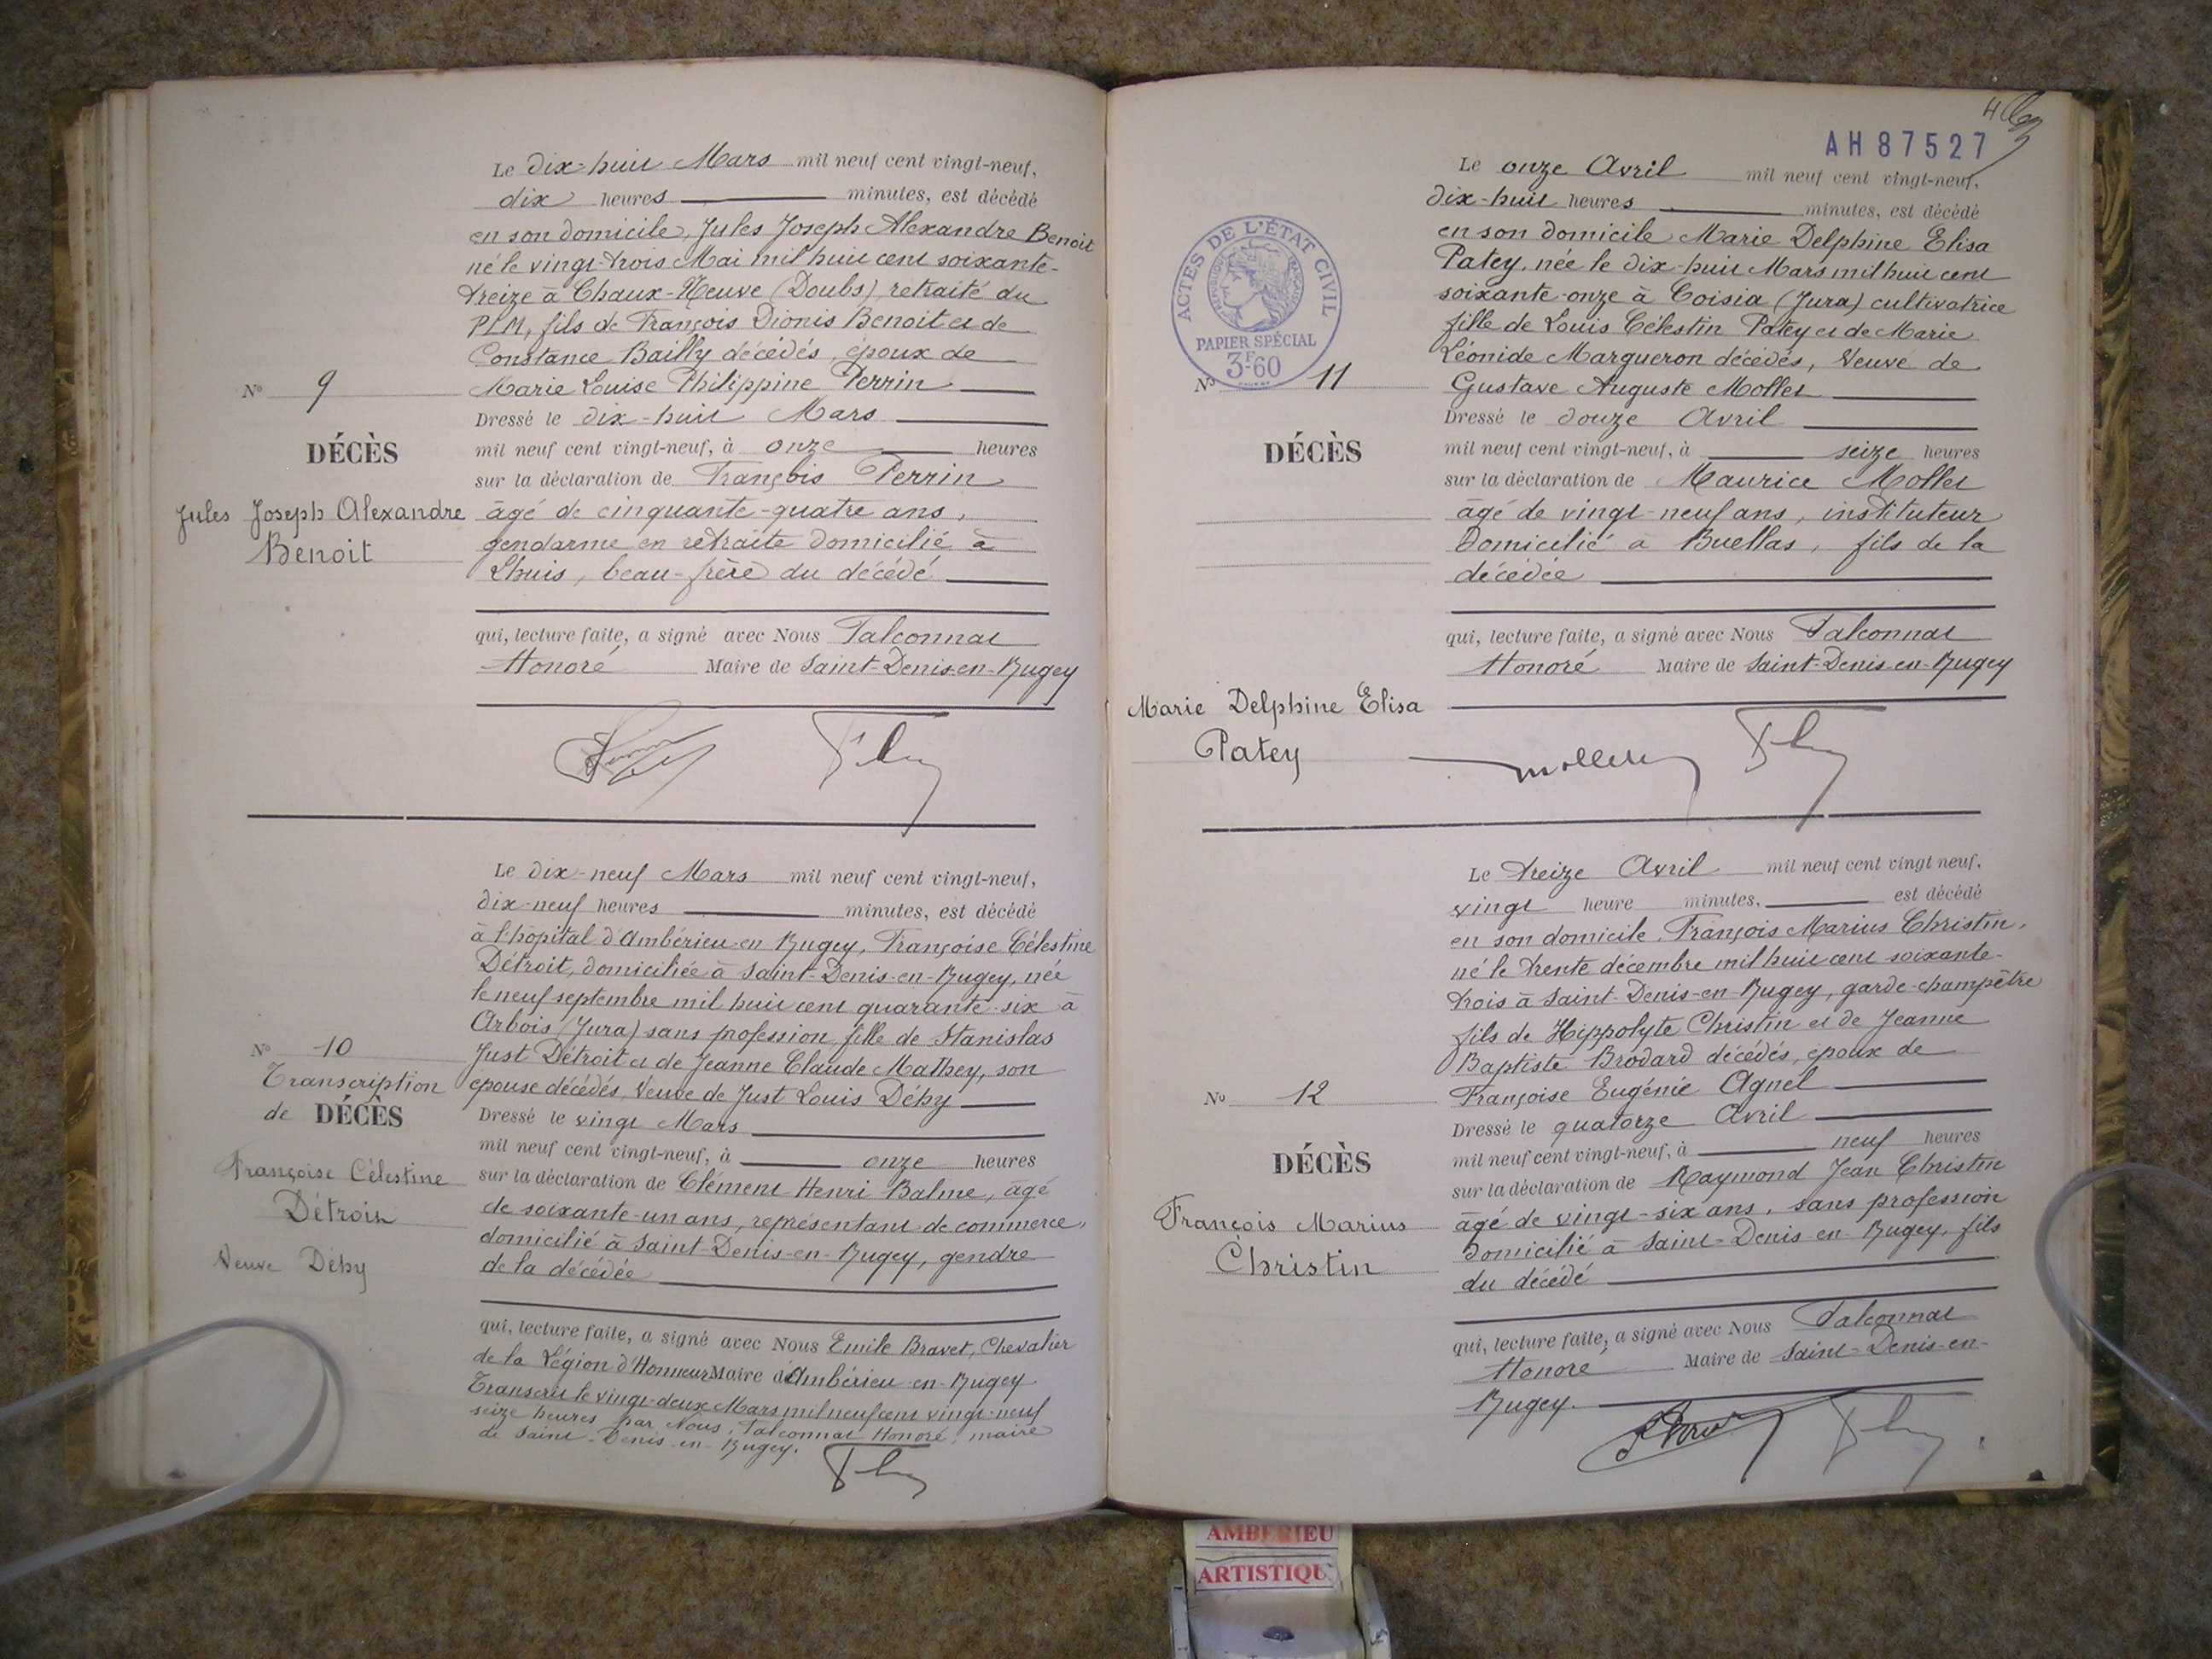 Le dix-huit Mars mil neuf cent vingt-neuf,
dix heures minutes, est décédé
en son domicile, Jules Joseph Alexandre Benoit
né le vingt-trois Mai mil huit cent soixante-
treize à Chaux-Neuve (Doubs) retraité du
PLM, fils de François Dionis Benoit et de
Constance Bailly décédés, époux de
Marie Louise Philippine Perrin
N° 9
Dressé le dix-huit Mars
mil neuf cent vingt-neuf, à onze heures
DÉCÈS
sur la déclaration de François Perrin
Jules Joseph Alexandre
Benoit
âgé de cinquante-quatre ans,
gendarme en retraite domicilié à
Lhuis, beau-frère du décédé
qui, lecture faite, a signé avec Nous Falconnat
Honoré Maire de Saint-Denis-en-Bugey
Le dix-neuf Mars mil neuf cent vingt-neuf,
dix-neuf heures minutes, est décédé
à l'hopital d'Ambérieu-en-Bugey, Françoise Célestine
Détroit, domiciliée à Saint-Denis-en-Bugey, née
le neuf septembre mil huit cent quarante-six à
Arbois (Jura) sans profession fille de Stanislas
Just Détroit et de Jeanne Claude Mathey, son
épouse décédés, Veuve de Just Louis Déhy
N° 10
Transcription
de DÉCÈS
Françoise Célestine
Détroit
Veuve Déhy
Dressé le vingt Mars
mil neuf cent vingt-neuf, à onze heures
sur la déclaration de Clément Henri Balme, âgé
de soixante-un ans, représentant de commerce,
domicilié à Saint-Denis-en-Bugey, gendre
de la décédée
qui, lecture faite, a signé avec Nous Emile Bravet, Chevalier
de la Légion d'Honneur Maire d'Ambérieu-en-Bugey
Transcrit le vingt-deux Mars mil neuf cent vingt-neuf
seize heures par Nous, Falconnat Honoré, maire
de Saint-Denis-en-Bugey.
AH87527
Le onze Avril mil neuf cent vingt-neuf,
dix-huit heures minutes, est décédé
en son domicile Marie Delphine Elisa
Patey, née le dix-huit Mars mil huit cent
soixante-onze à Coisia (Jura) cultivatrice
fille de Louis Célestin Patey et de Marie
Léonide Margueron décédés, Veuve de
Gustave Auguste Mollet
ACTES DE L'ÉTAT CIVIL
RÉPUBLIQUE FRANÇAISE
PAPIER SPÉCIAL
3F60
N° 11
DÉCÈS
Dressé le douze Avril
mil neuf cent vingt-neuf, à seize heures
sur la déclaration de Maurice Mollet
âgé de vingt-neuf ans, instituteur
domicilié à Buellas, fils de la
décédée
qui, lecture faite, a signé avec Nous Falconnat
Honoré Maire de Saint-Denis-en-Bugey
Marie Delphine Elisa
Patey
Le treize Avril mil neuf cent vingt neuf,
vingt heure minutes, est décédé
en son domicile, François Marius Christin,
né le trente décembre mil huit cent soixante-
trois à Saint-Denis-en-Bugey, garde-champêtre
fils de Hippolyte Christin et de Jeanne
Baptiste Brodard décédés, époux de
Françoise Eugénie Agnel
N° 12
DÉCÈS
François Marius
Christin
Dressé le quatorze Avril
mil neuf cent vingt-neuf, à neuf heures
sur la déclaration de Raymond Jean Christin
âgé de vingt-six ans, sans profession
domicilié à Saint-Denis-en-Bugey, fils
du décédé
qui, lecture faite, a signé avec Nous Falconnat
Honoré Maire de Saint-Denis-en-
Bugey.
AMBERIEU
ARTISTIQU